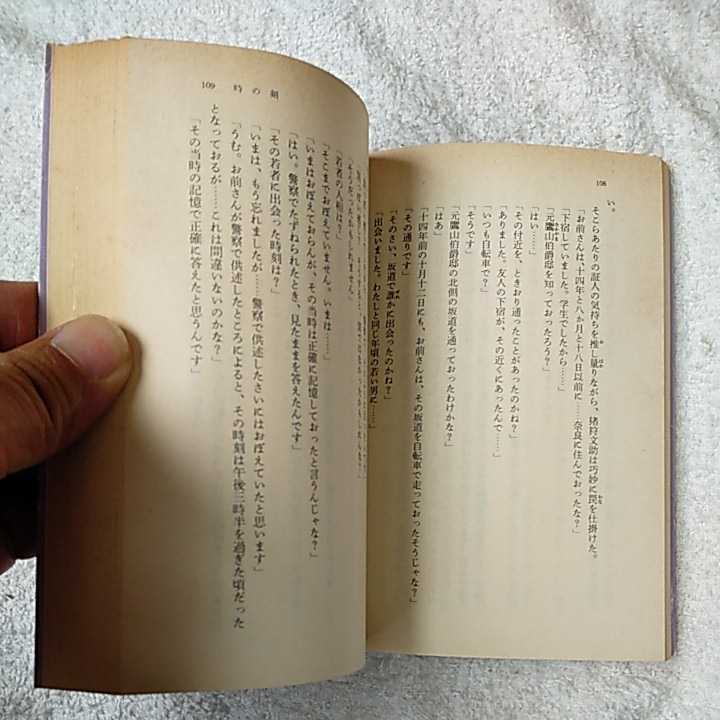 108
い。
そこらあたりの証人の気持ちを推し量りながら、猪狩文助は巧妙に罠を仕掛けた。
「お前さんは、十四年と八か月と十八日以前に……奈良に住んでおったな？」
「下宿していました。学生でしたから……」
「元鷹山伯爵邸を知っておったろう？」
「はい……」
「その付近を、ときおり通ったことがあったのかね？」
「ありました。友人の下宿が、その近くにあったんで……」
「いつも自転車で？」
「そうです」
「元鷹山伯爵邸の北側の坂道を通っておったわけかな？」
「はあ」
「十四年前の十月十二日にも、お前さんは、その坂道を自転車で走っておったそうじゃな？」
「その通りです」
「そのさい、坂道で誰かに出会ったのかね？」
「出会いました。わたしと同じ年頃の若い男に……」
109 時の剣
「若者の人相は？」
「そこまでおぼえていません。いまは……」
「いまはおぼえておらんが、その当時は正確に記憶しておったと言うんじゃな？」
「はい。警察でたずねられたとき、見たままを答えたんです」
「その若者に出会った時刻は？」
「いまは、もう忘れましたが……警察で供述したさいにはおぼえていたと思います」
「うむ。お前さんが警察で供述したところによると、その時刻は午後三時半を過ぎた頃だった
となっておるが……これは間違いないのかな？」
「その当時の記憶で正確に答えたと思うんです」